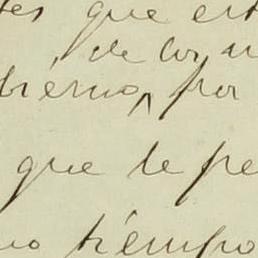 tes que est
de los u
bierno, por
que le pe
no tiempo